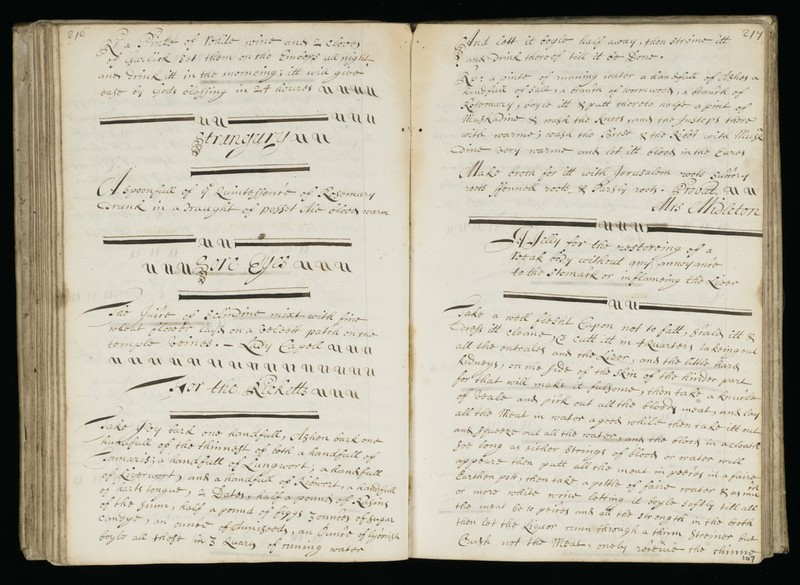 216
Rx a Pinte of White wine and 2 cloves
of Garlick Set them on the Embers all night
and Drink itt in the morneing, itt will give
ease by Gods blessing in 24 houres
Strangury
A spoonfull of ye Quintessence of Rosemary
Drunk in a Draught of posset Ale blood warm
Sore Eyes
The Juice of Selindine mixt with fine
wheat flower layd on a velvett patch on the
temple veines. - Lady Capell
For the Ricketts
Take Ivy bark one handfull, Ashen bark one
handfull of the thinnest of both a handfull of
Tamaris; a handfull of Lungwort, a handfull
of Liverwort, and a handfull of
of harts tongue, 2 Dates, half a pound of Resons
of the Sunn, half a pound of figgs 3 ounces of Sugar
Candye, an ounce of Anniseeds, an Ounce of Lycorish
boyle all these in 3 Quarts of runing water
217
And lett it boyle half away, then streine itt
and Drink thereof till it be Done.
Rx: a pinte of running water a handfull of Ashes a
handfull of salt, a branch of wormwood, a branch of
Rosemary, boyle itt & putt thereto halfe a pint of
Muskadine & wash the knees, and the Insteps there
with warme, wash the Brest & the Ribbs with Musk
Dine very warme and let itt blood in the Eares
Make broth for itt with Jerusalem roots Suckory
roots ffennell roots & Parsly roots. Probat
Mrs Midleton
A Jelly for the restoreing of a
Weak body without any annoyance
to the Stomack or inflameing the Liver
Take a well flesht Capon not to fatt, scald itt &
Dress itt cleane, & cutt itt in 4 Quarters takeing out
all the entrales and the Liver, and the little hard
kidneys, on the side of the Skin of the hinder part
for that will make it fulsome, then take a knuckle
of Veale and pick out all the bloody meat, and lay
all the Meat in water a good while then take itt out
and squeeze out all the water, and the blood in a cloath
soe long as either strings of blood or water will
appeare then putt all the meat in peeces in a faire
Earthen pott, then take a pottle of faire water & as much
or more white wine leting it boyle softly till all
the meat be to peices and all the strength in the broth
then let the Liquor runn through a thinn streiner but
Crush not the Meat, onely receive the thinne
107